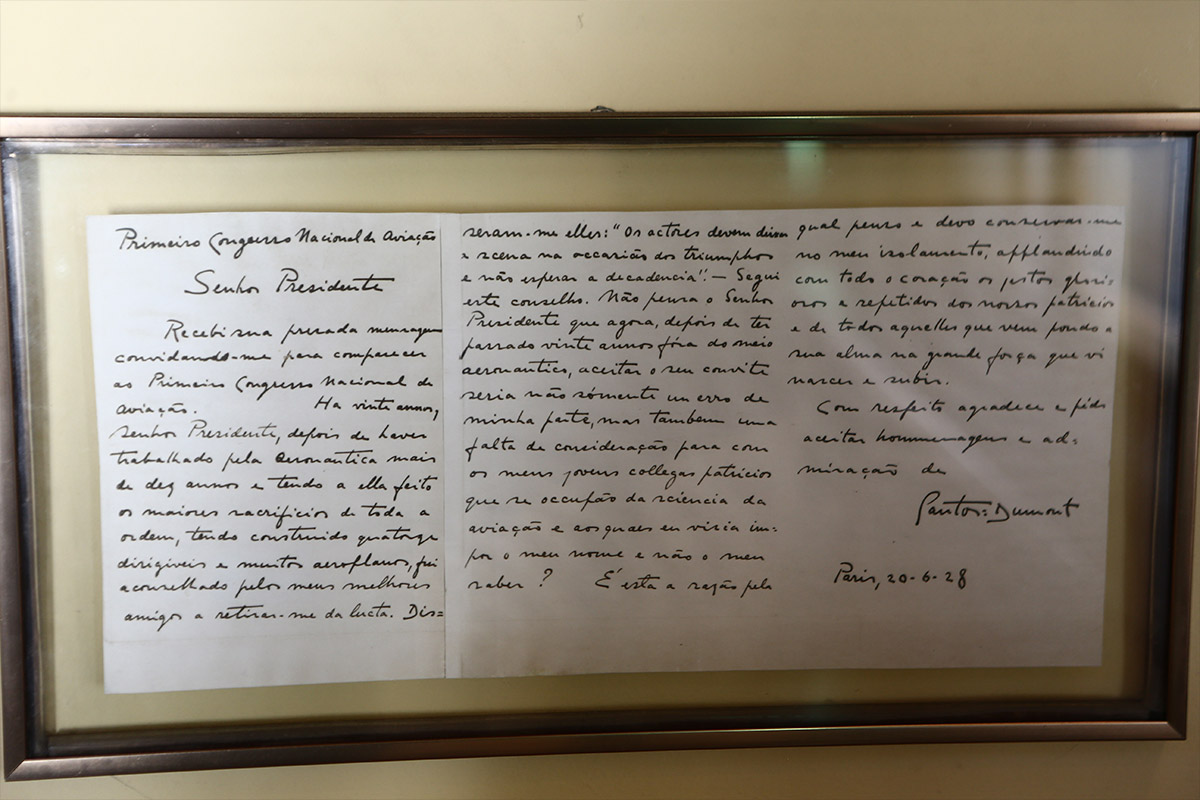 Primeiro Congresso Nacional de Aviação
Senhor Presidente
Recebi sua prezada mensagem
convidando-me para comparecer
ao Primeiro Congresso Nacional de
aviação. Ha vinte annos,
senhor Presidente, depois de haver
trabalhado pela aeronautica mais
de dez annos e tendo a ella feito
os maiores sacrificios de toda a
ordem, tendo construido quatorze
dirigiveis e muitos aeroplanos, fui
aconselhado pelos meus melhores
amigos a retirar-me da lucta. Dis=
seram-me elles: "Os actores devem deixar
a scena na occasião dos triumphos
e não esperar a decadencia". — Segui
este conselho. Não pensa o Senhor
Presidente que agora, depois de ter
passado vinte annos fóra do meio
aeronautico, aceitar o seu convite
seria não sómente um erro de
minha parte, mas tambem uma
falta de consideração para com
os meus jovens collegas patricios
que se occupão da sciencia da
aviação e aos quaes eu viria im=
por o meu nome e não o meu
saber? É esta a razão pela
qual penso e devo conservar-me
no meu isolamento, applaudindo
com todo o coração os feitos glori=
osos e repetidos dos nossos patricios
e de todos aquelles que vem pondo a
sua alma na grande força que vi
nascer e subir.
Com respeito agradece e péde
aceitar hommenagens e ad=
miração de
Santos=Dumont
Paris, 20-6-28